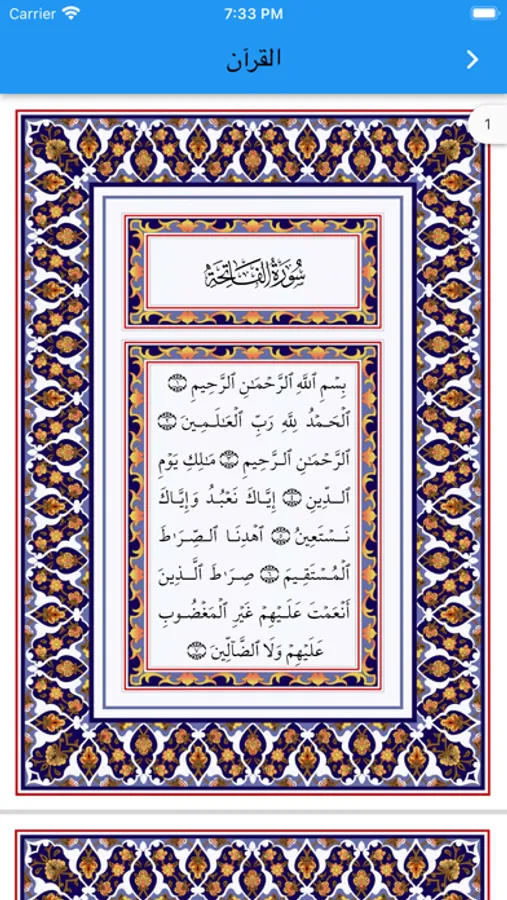 Carrier 7:33 PM
القرآن
1
سُورَةُ الفَاتِحَةِ
بِسْمِ ٱللَّهِ ٱلرَّحْمَٰنِ ٱلرَّحِيمِ ١
ٱلْحَمْدُ لِلَّهِ رَبِّ ٱلْعَٰلَمِينَ ٢
ٱلرَّحْمَٰنِ ٱلرَّحِيمِ ٣ مَٰلِكِ يَوْمِ
ٱلدِّينِ ٤ إِيَّاكَ نَعْبُدُ وَإِيَّاكَ
نَسْتَعِينُ ٥ ٱهْدِنَا ٱلصِّرَٰطَ
ٱلْمُسْتَقِيمَ ٦ صِرَٰطَ ٱلَّذِينَ
أَنْعَمْتَ عَلَيْهِمْ غَيْرِ ٱلْمَغْضُوبِ
عَلَيْهِمْ وَلَا ٱلضَّآلِّينَ ٧